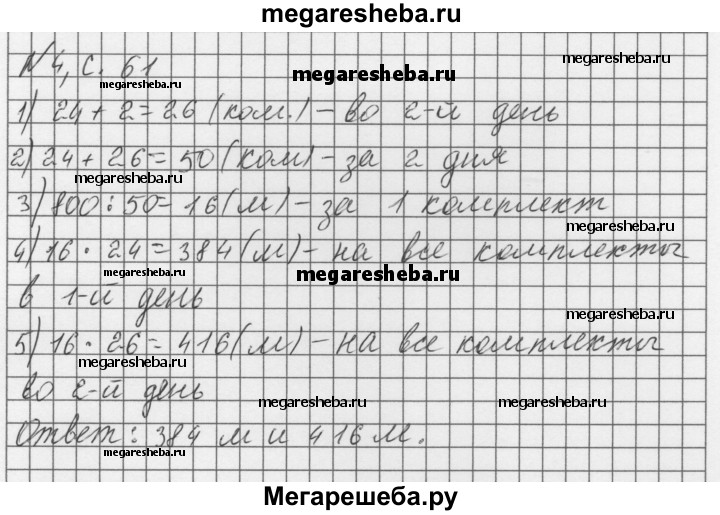 megaresheba.ru
N 4, с. 61
megaresheba.ru
megaresheba.ru
1) 24 + 2 = 26 (ком.) – во 2-й день
megaresheba.ru
megaresheba.ru
2) 24 + 26 = 50 (ком) – за 2 дня
megaresheba.ru
megaresheba.ru
3) 800 : 50 = 16 (м) – за 1 комплект
4) 16 · 24 = 384 (м) – на все комплекты
megaresheba.ru
megaresheba.ru
в 1-й день
megaresheba.ru
5) 16 · 26 = 416 (м) – на все комплекты
megaresheba.ru
во 2-й день
megaresheba.ru
megaresheba.ru
Ответ: 384 м и 416 м.
megaresheba.ru
Мегарешеба.ру